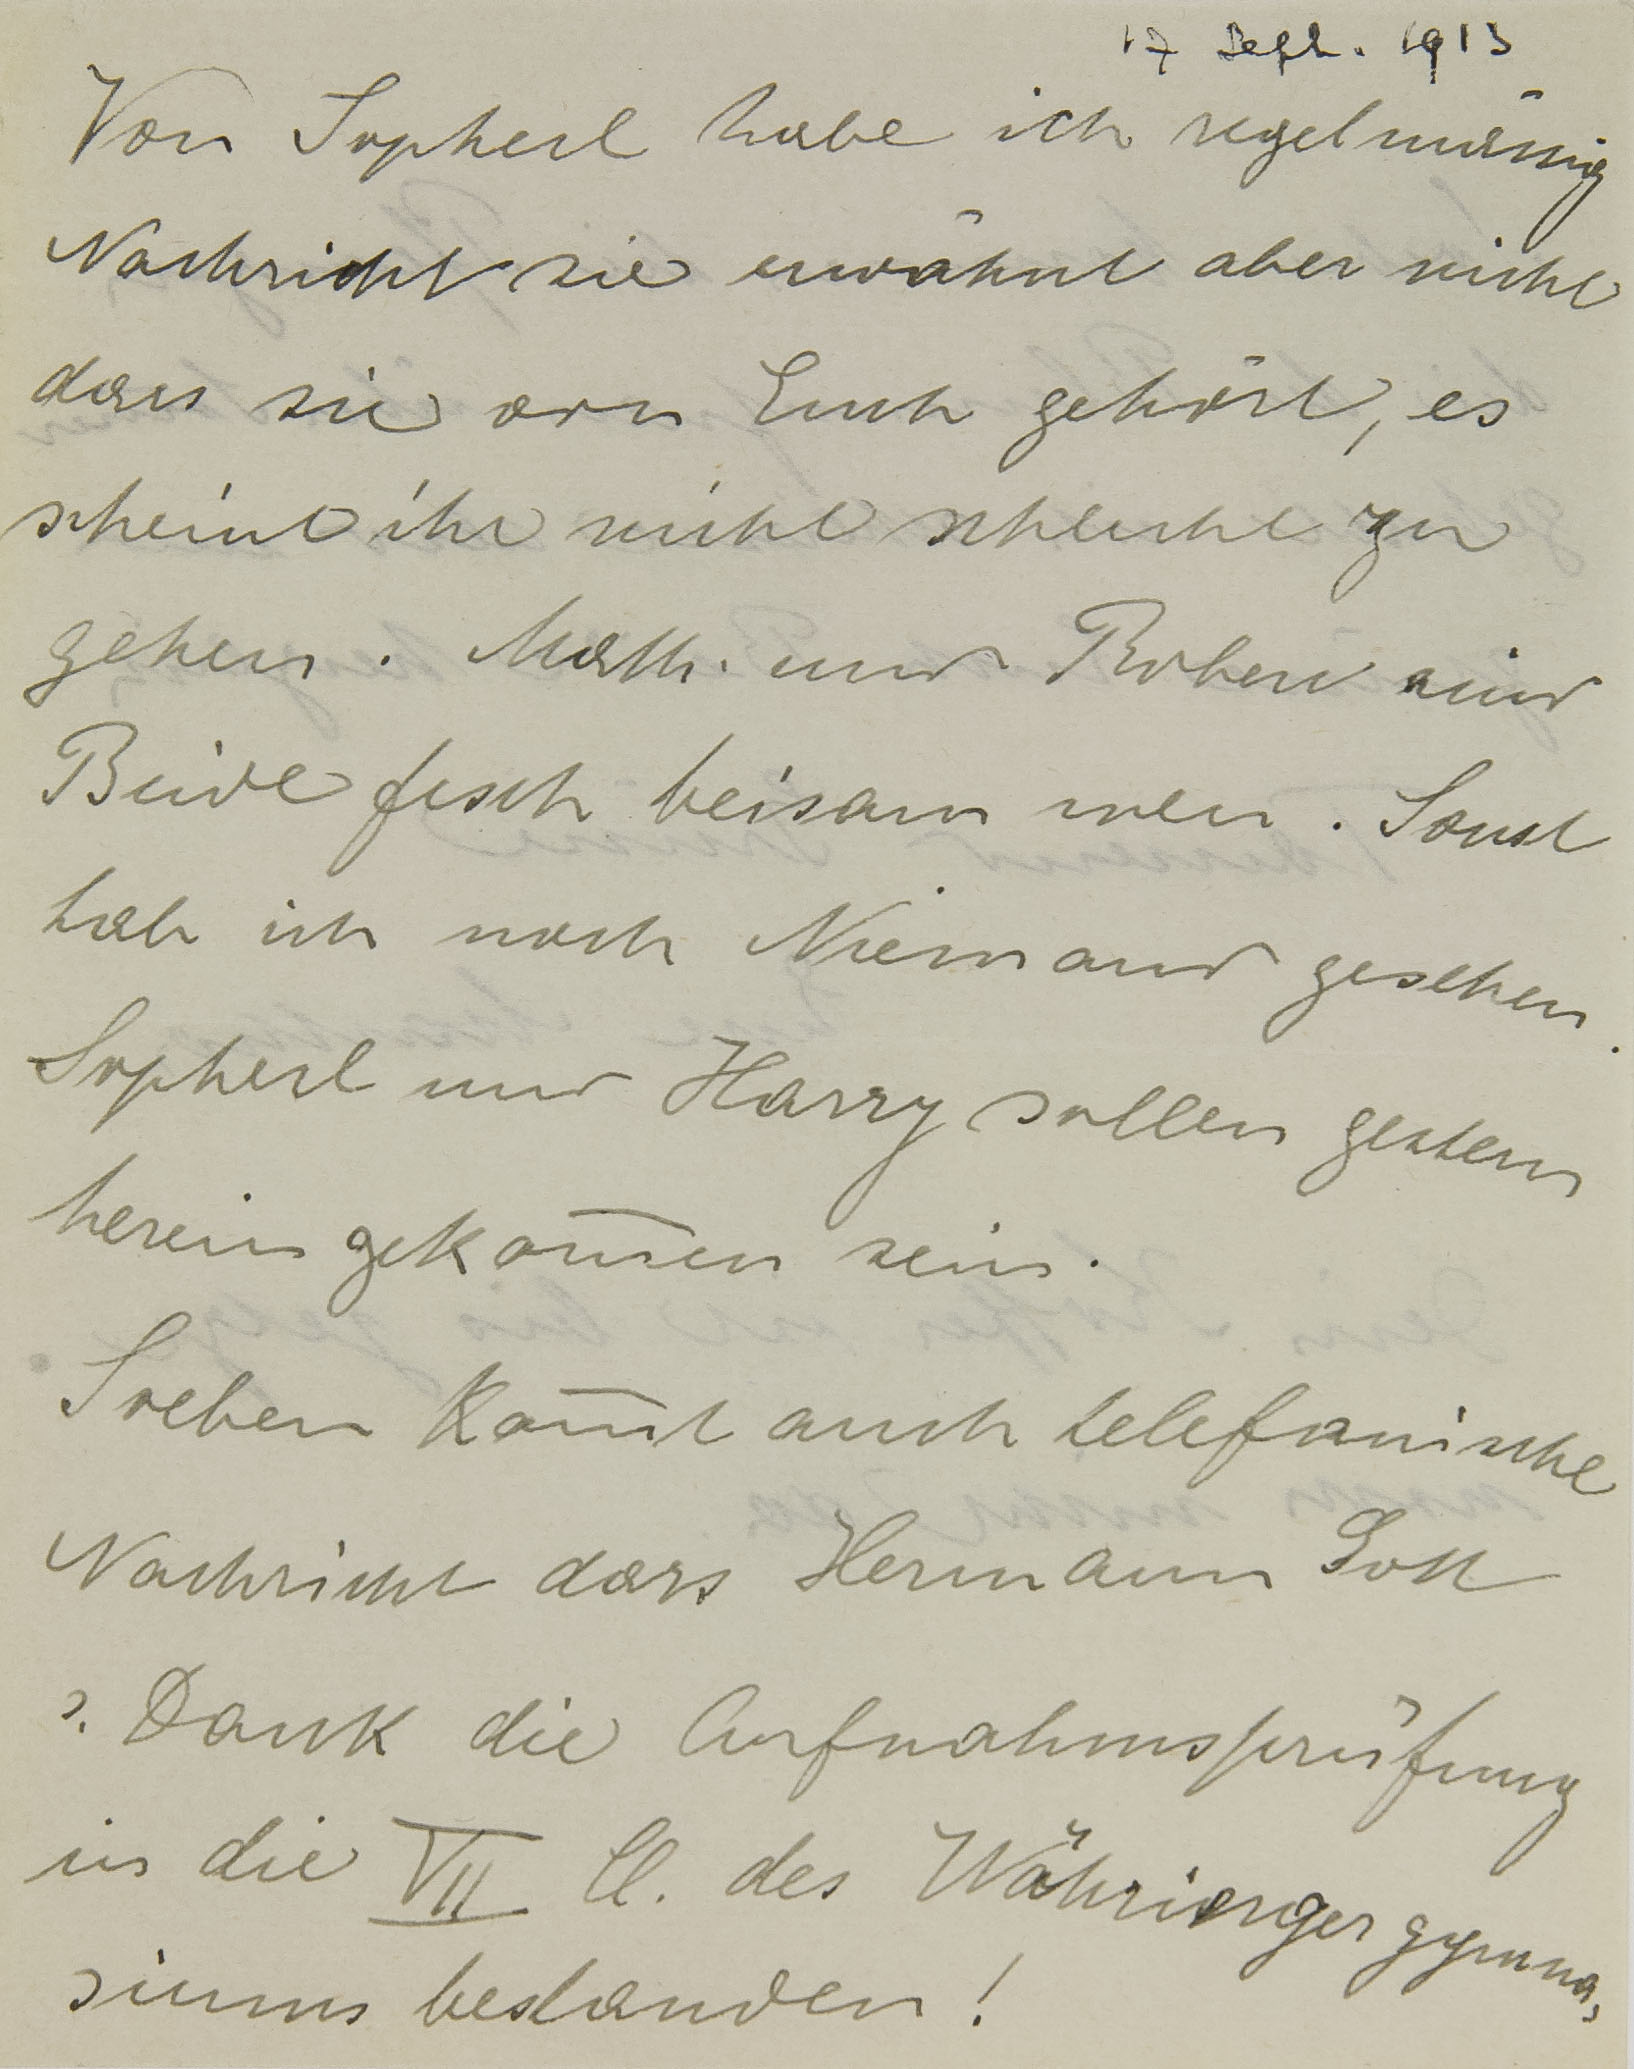 17 Sept. 1913
Von Sopherl habe ich regelmässig
Nachricht sie erwähnt aber nicht
dass sie von Euch gehört, es
scheint ihr nicht schlecht zu
gehen. Math. und Robert sind
Beide fesch beisammen. Sonst
hab ich noch Niemand gesehen.
Sopherl und Harry sollen gestern
hereingekom̅en sein.
Soeben kom̅t auch telefonische
Nachricht dass Hermann Gott
s. Dank die Aufnahmsprüfung
in die VII Cl. des Währingergymna-
siums bestanden!